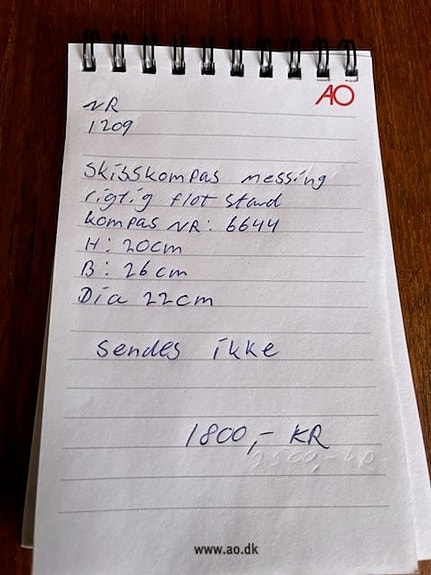 AO
NR
1209
Skibskompas messing
rigtig flot stand
kompas NR: 6644
H: 20cm
B: 26cm
Dia 22cm
sendes ikke
1800,- KR
www.ao.dk